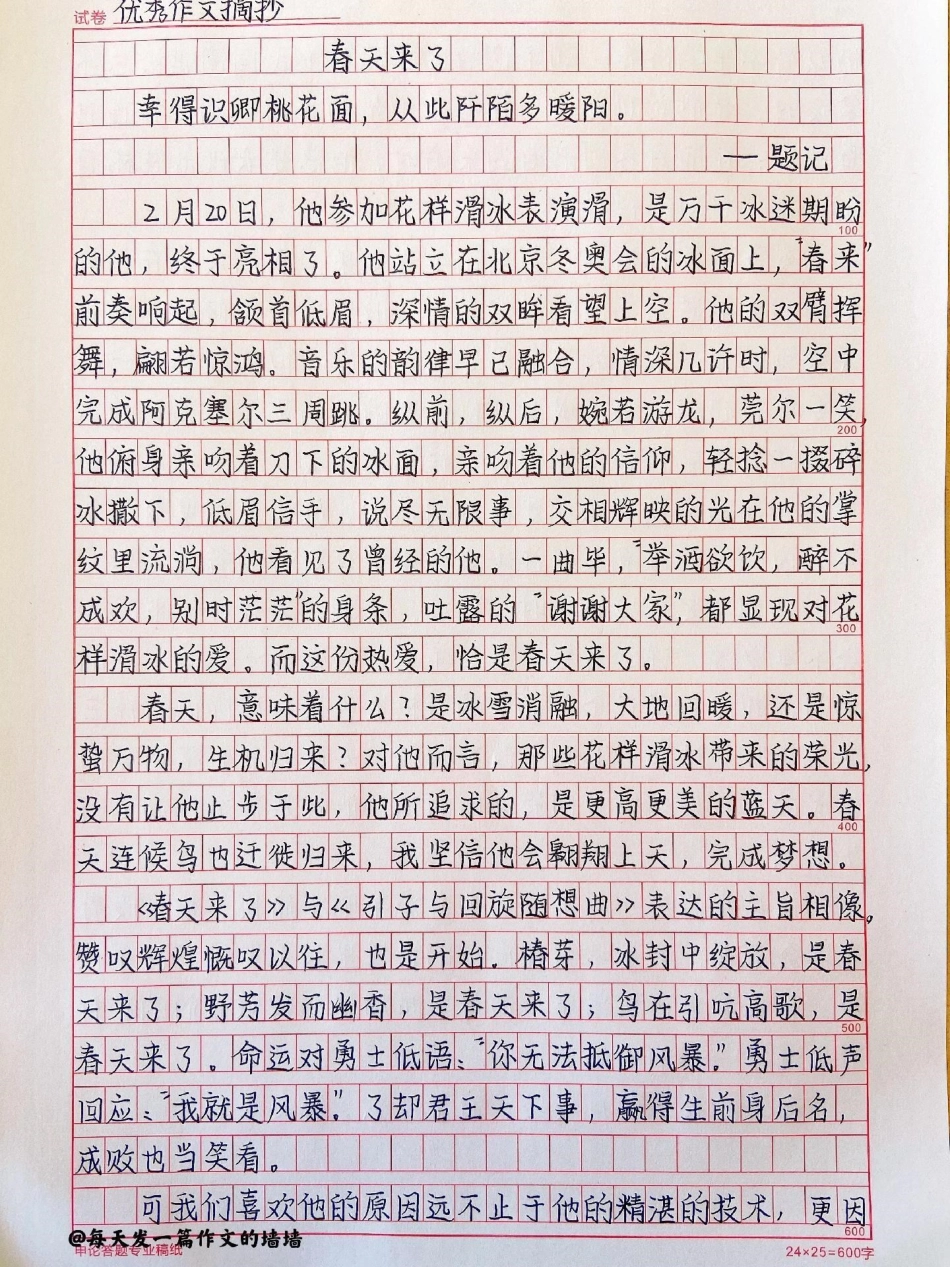 试卷 优秀作文摘抄
春天来了
幸得识卿桃花面，从此阡陌多暖阳。
—题记
2月20日，他参加花样滑冰表演滑，是万千冰迷期盼
100
的他，终于亮相了。他站立在北京冬奥会的冰面上，“春来”
前奏响起，颔首低眉，深情的双眸看望上空。他的双臂挥
舞，翩若惊鸿。音乐的韵律早已融合，情深几许时，空中
完成阿克塞尔三周跳。纵前，纵后，婉若游龙，莞尔一笑，
200
他俯身亲吻着刀下的冰面，亲吻着他的信仰，轻捻一掇碎
冰撒下，低眉信手，说尽无限事，交相辉映的光在他的掌
纹里流淌，他看见了曾经的他。一曲毕，“举酒欲饮，醉不
成欢，别时茫茫”的身条，吐露的“谢谢大家”，都显现对花
300
样滑冰的爱。而这份热爱，恰是春天来了。
春天，意味着什么？是冰雪消融，大地回暖，还是惊
蛰万物，生机归来？对他而言，那些花样滑冰带来的荣光，
没有让他止步于此，他所追求的，是更高更美的蓝天。春
400
天连候鸟也迁徙归来，我坚信他会翱翔上天，完成梦想。
《春天来了》与《引子与回旋随想曲》表达的主旨相像。
赞叹辉煌慨叹以往，也是开始。椿芽，冰封中绽放，是春
天来了；野芳发而幽香，是春天来了；鸟在引吭高歌，是
500
春天来了。命运对勇士低语：“你无法抵御风暴。”勇士低声
回应：“我就是风暴”。了却君王天下事，赢得生前身后名，
成败也当笑看。
可我们喜欢他的原因远不止于他的精湛的技术，更因
600
@每天发一篇作文的墙墙
申论答题专业稿纸
24×25=600字